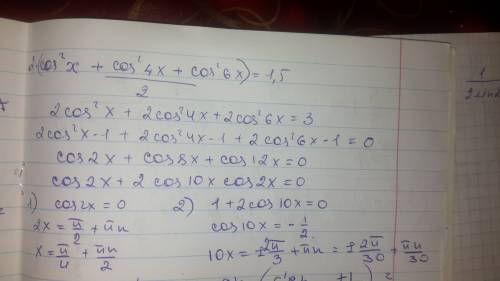 (cos²x + cos²4x + cos²6x) = 1,5
2
2cos²x + 2cos²4x + 2cos²6x = 3
2cos²x-1 + 2cos²4x-1 + 2cos²6x-1 = 0
cos2x + cos8x + cos12x = 0
cos2x + 2cos10x cos2x = 0
1) cos2x = 0
2x = π/2 + πn
x = π/4 + πn/2
2) 1 + 2cos10x = 0
cos10x = -1/2
10x = ±2π/3 + πn = ±2π/30 + πn/30